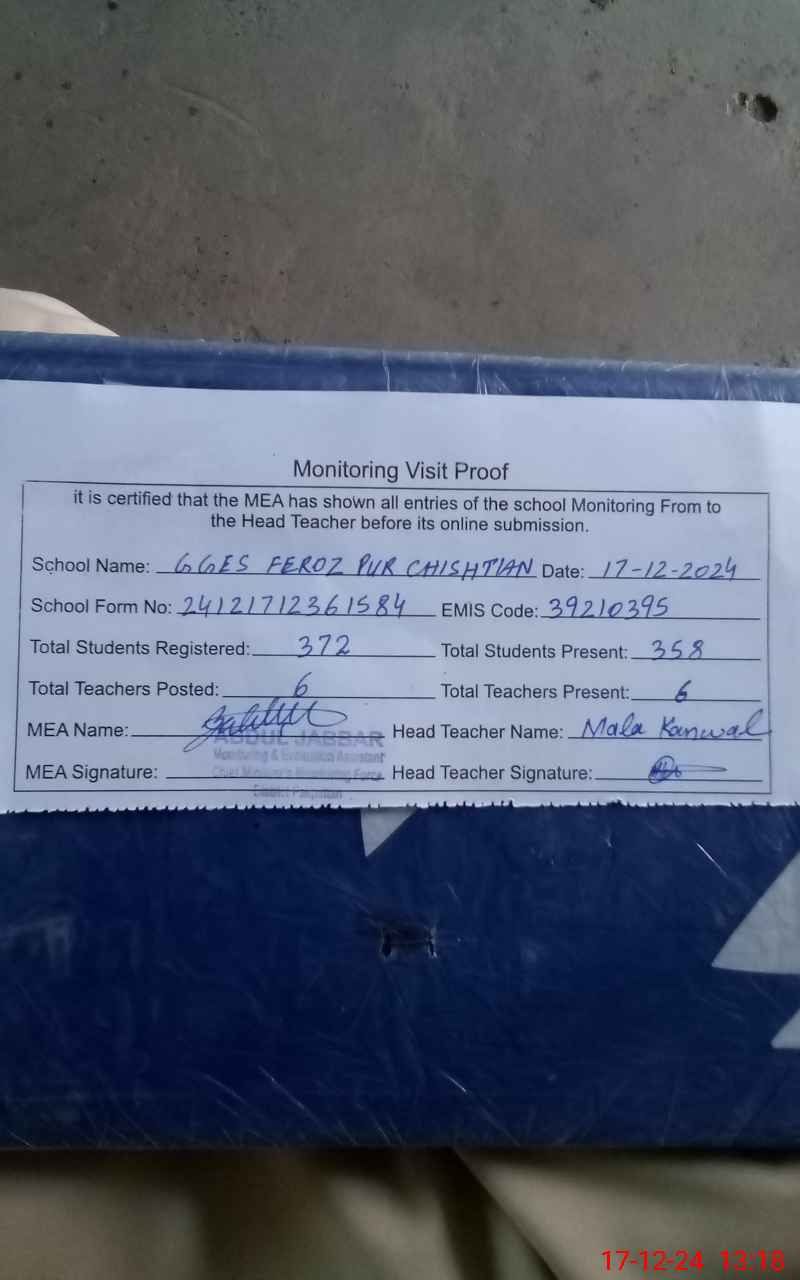 Monitoring Visit Proof
it is certified that the MEA has shown all entries of the school Monitoring From to
the Head Teacher before its online submission.
School Name: GGES FEROZ PUR CHISHTIAN Date: 17-12-2024
School Form No: 24121712361584 EMIS Code: 39210395
Total Students Registered: 372 Total Students Present: 358
Total Teachers Posted: 6 Total Teachers Present: 6
MEA Name: Head Teacher Name: Mala Kanwal
ABDUL JABBAR
Monitoring & Evaluation Assistant
MEA Signature: Head Teacher Signature:
Chief Minister's Monitoring Force
District Pakpattan
17-12-24 13:18